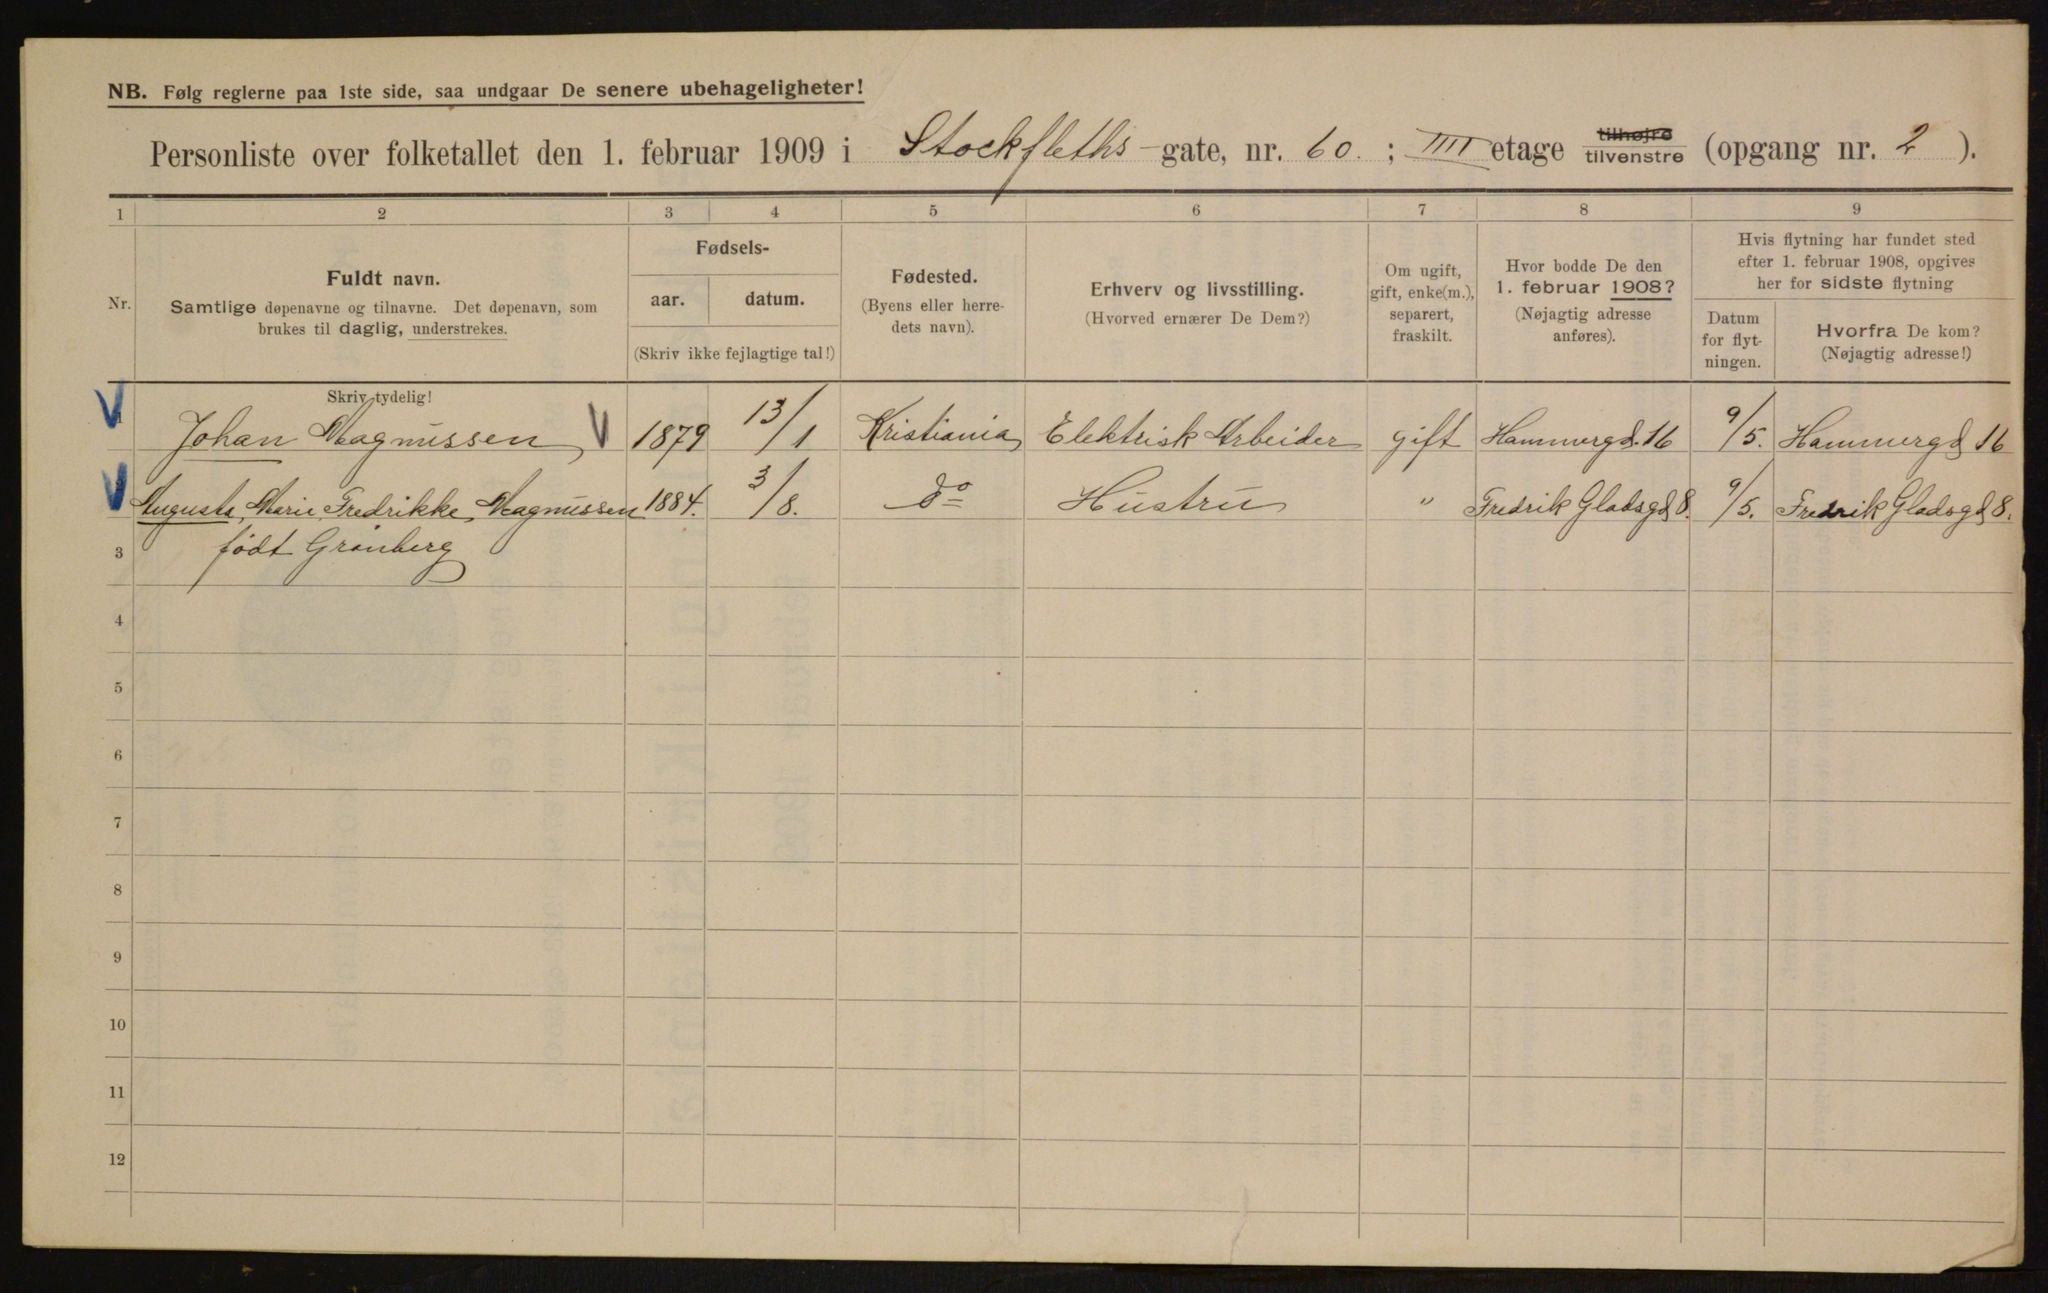 NB. Følg reglerne paa 1ste side, saa undgaar De senere ubehageligheter!
Personliste over folketallet den 1. februar 1909 i Stockfleths-gate, nr. 60. ; IIII etage tilhøjre tilvenstre (opgang nr. 2 ).
1 2 3 4 5 6 7 8 9
Nr.
Fuldt navn.
Samtlige døpenavne og tilnavne. Det døpenavn, som
brukes til daglig, understrekes.
Fødsels-
aar. datum.
(Skriv ikke fejlagtige tal!)
Fødested.
(Byens eller herre-
dets navn).
Erhverv og livsstilling.
(Hvorved ernærer De Dem?)
Om ugift,
gift, enke(m.),
separert,
fraskilt.
Hvor bodde De den
1. februar 1908?
(Nøjagtig adresse
anføres).
Hvis flytning har fundet sted
efter 1. februar 1908, opgives
her for sidste flytning
Datum
for flyt-
ningen.
Hvorfra De kom?
(Nøjagtig adresse!)
Skriv tydelig!
1 Johan Magnussen 1879 13/1 Kristiania Elektrisk Arbeider gift Hammergd. 16 9/5. Hammergd 16
2 Augusta, Marie, Fredrikke, Magnussen 1884. 3/8. do Hustru " Fredrik Gladsgd 8. 9/5. Fredrik Gladsgd 8.
3 født Grønberg
4
5
6
7
8
9
10
11
12